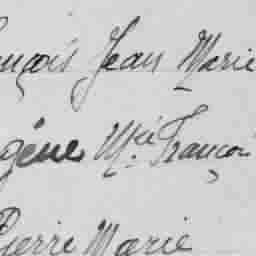 ançois Jean Marie
gène Mie Françoi
Pierre Marie